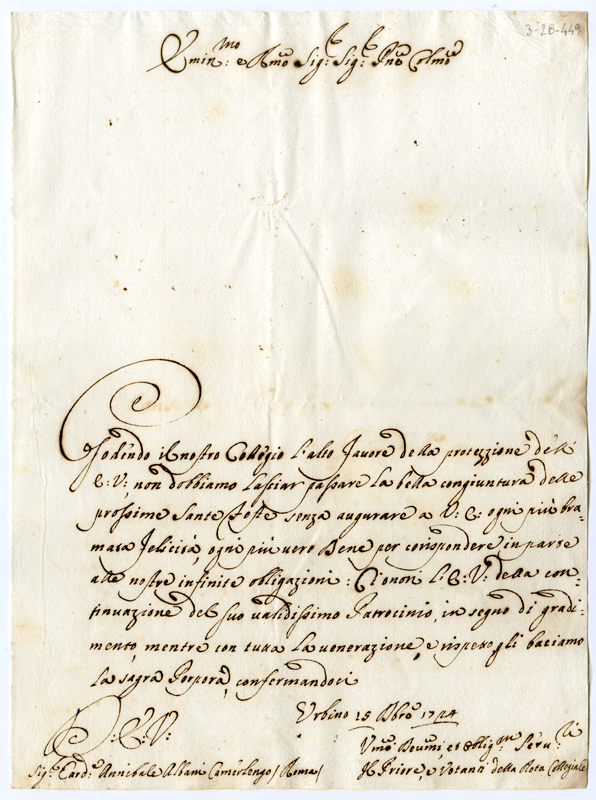 3-28-449
Emin:mo e Rmo Sig:r Sig:r Pne Colmo
Godendo il nostro Collegio l'alto favore della protezzione dell'
E: V: non dobbiamo lasciar passare la bella congiuntura delle
prossime Sante Feste senza augurare a V: E: ogni più bra=
mata felicità, ogni più vero Bene per corispondere in parte
alle nostre infinite obligazioni: Ci onori l'E: V: della con=
tinuazione del suo validissimo Patrocinio, in segno di gradi=
mento, mentre con tutta la venerazione, e rispetto gli baciamo
la sagra Porpora, confermandoci
Urbino 15 Xbre 1724
D: E: V:
Vmi Deumi, et Oblig:mi Seru:ri
Sig:r Card:e Annibale Albani Camerlengo / Roma /
Il Priore, e Votanti della Rota Collegiale